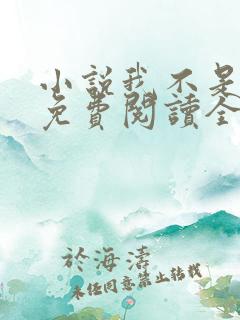 小說我不是
免費閱讀全
於海濤
未经同意禁止转载